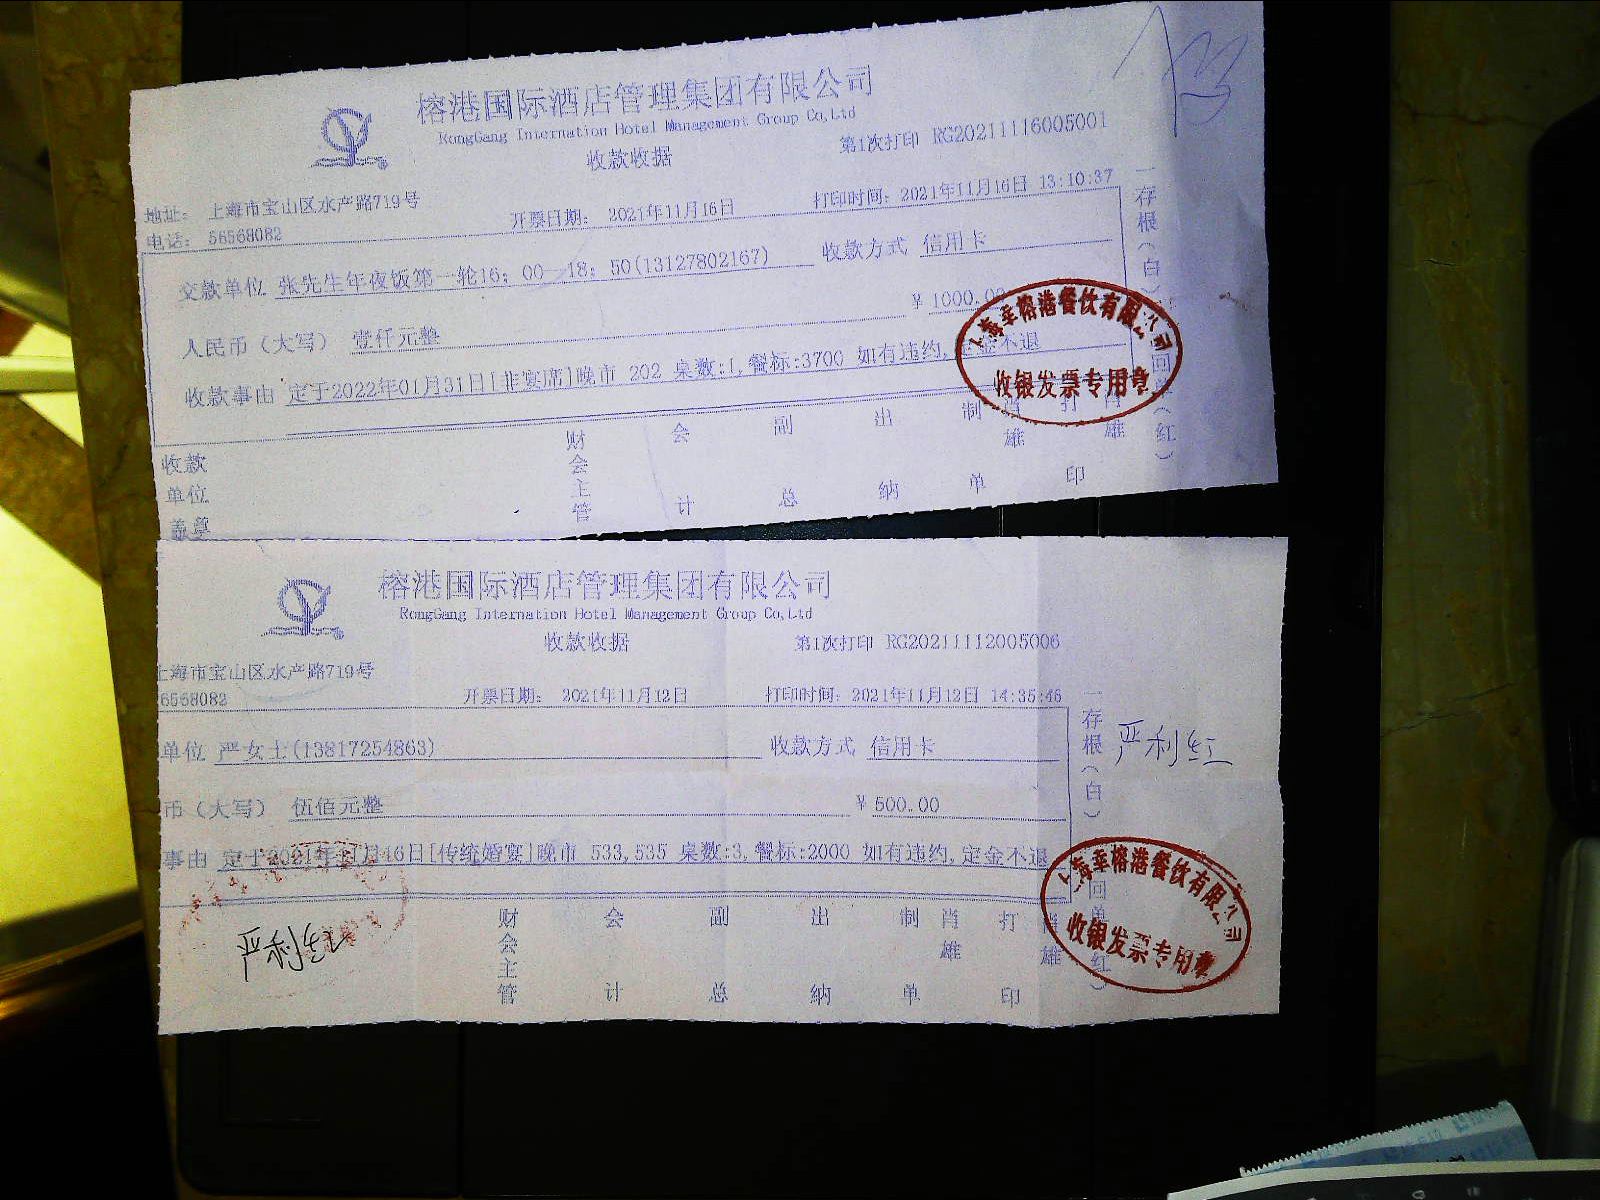 榕港国际酒店管理集团有限公司
RongGang Internation Hotel Management Group Co,Ltd
收款收据
第1次打印 RG20211116005001
地址： 上海市宝山区水产路719号
电话： 56568082
开票日期： 2021年11月16日
打印时间：2021年11月16日 13:10:37
交款单位 张先生年夜饭第一轮16：00—18：50(13127802167)
收款方式 信用卡
人民币（大写） 壹仟元整
￥1000.00
收款事由 定于2022年01月31日[非宴席]晚市 202 桌数:1,餐标:3700 如有违约,定金不退
收款单位盖章
财会主管
会计
副总
出纳
制单
肖雄
打印
肖雄
一存根（白）
回单（红）
上海幸榕港餐饮有限公司
收银发票专用章
榕港国际酒店管理集团有限公司
RongGang Internation Hotel Management Group Co,Ltd
收款收据
第1次打印 RG20211112005006
上海市宝山区水产路719号
56568082
开票日期： 2021年11月12日
打印时间：2021年11月12日 14:35:46
单位 严女士(13817254863)
收款方式 信用卡
币（大写） 伍佰元整
￥500.00
事由 定于2021年11月16日[传统婚宴]晚市 533,535 桌数:3,餐标:2000 如有违约,定金不退
财会主管
会计
副总
出纳
制单
肖雄
打印
肖雄
一存根（白）
回单（红）
严利红
上海幸榕港餐饮有限公司
收银发票专用章